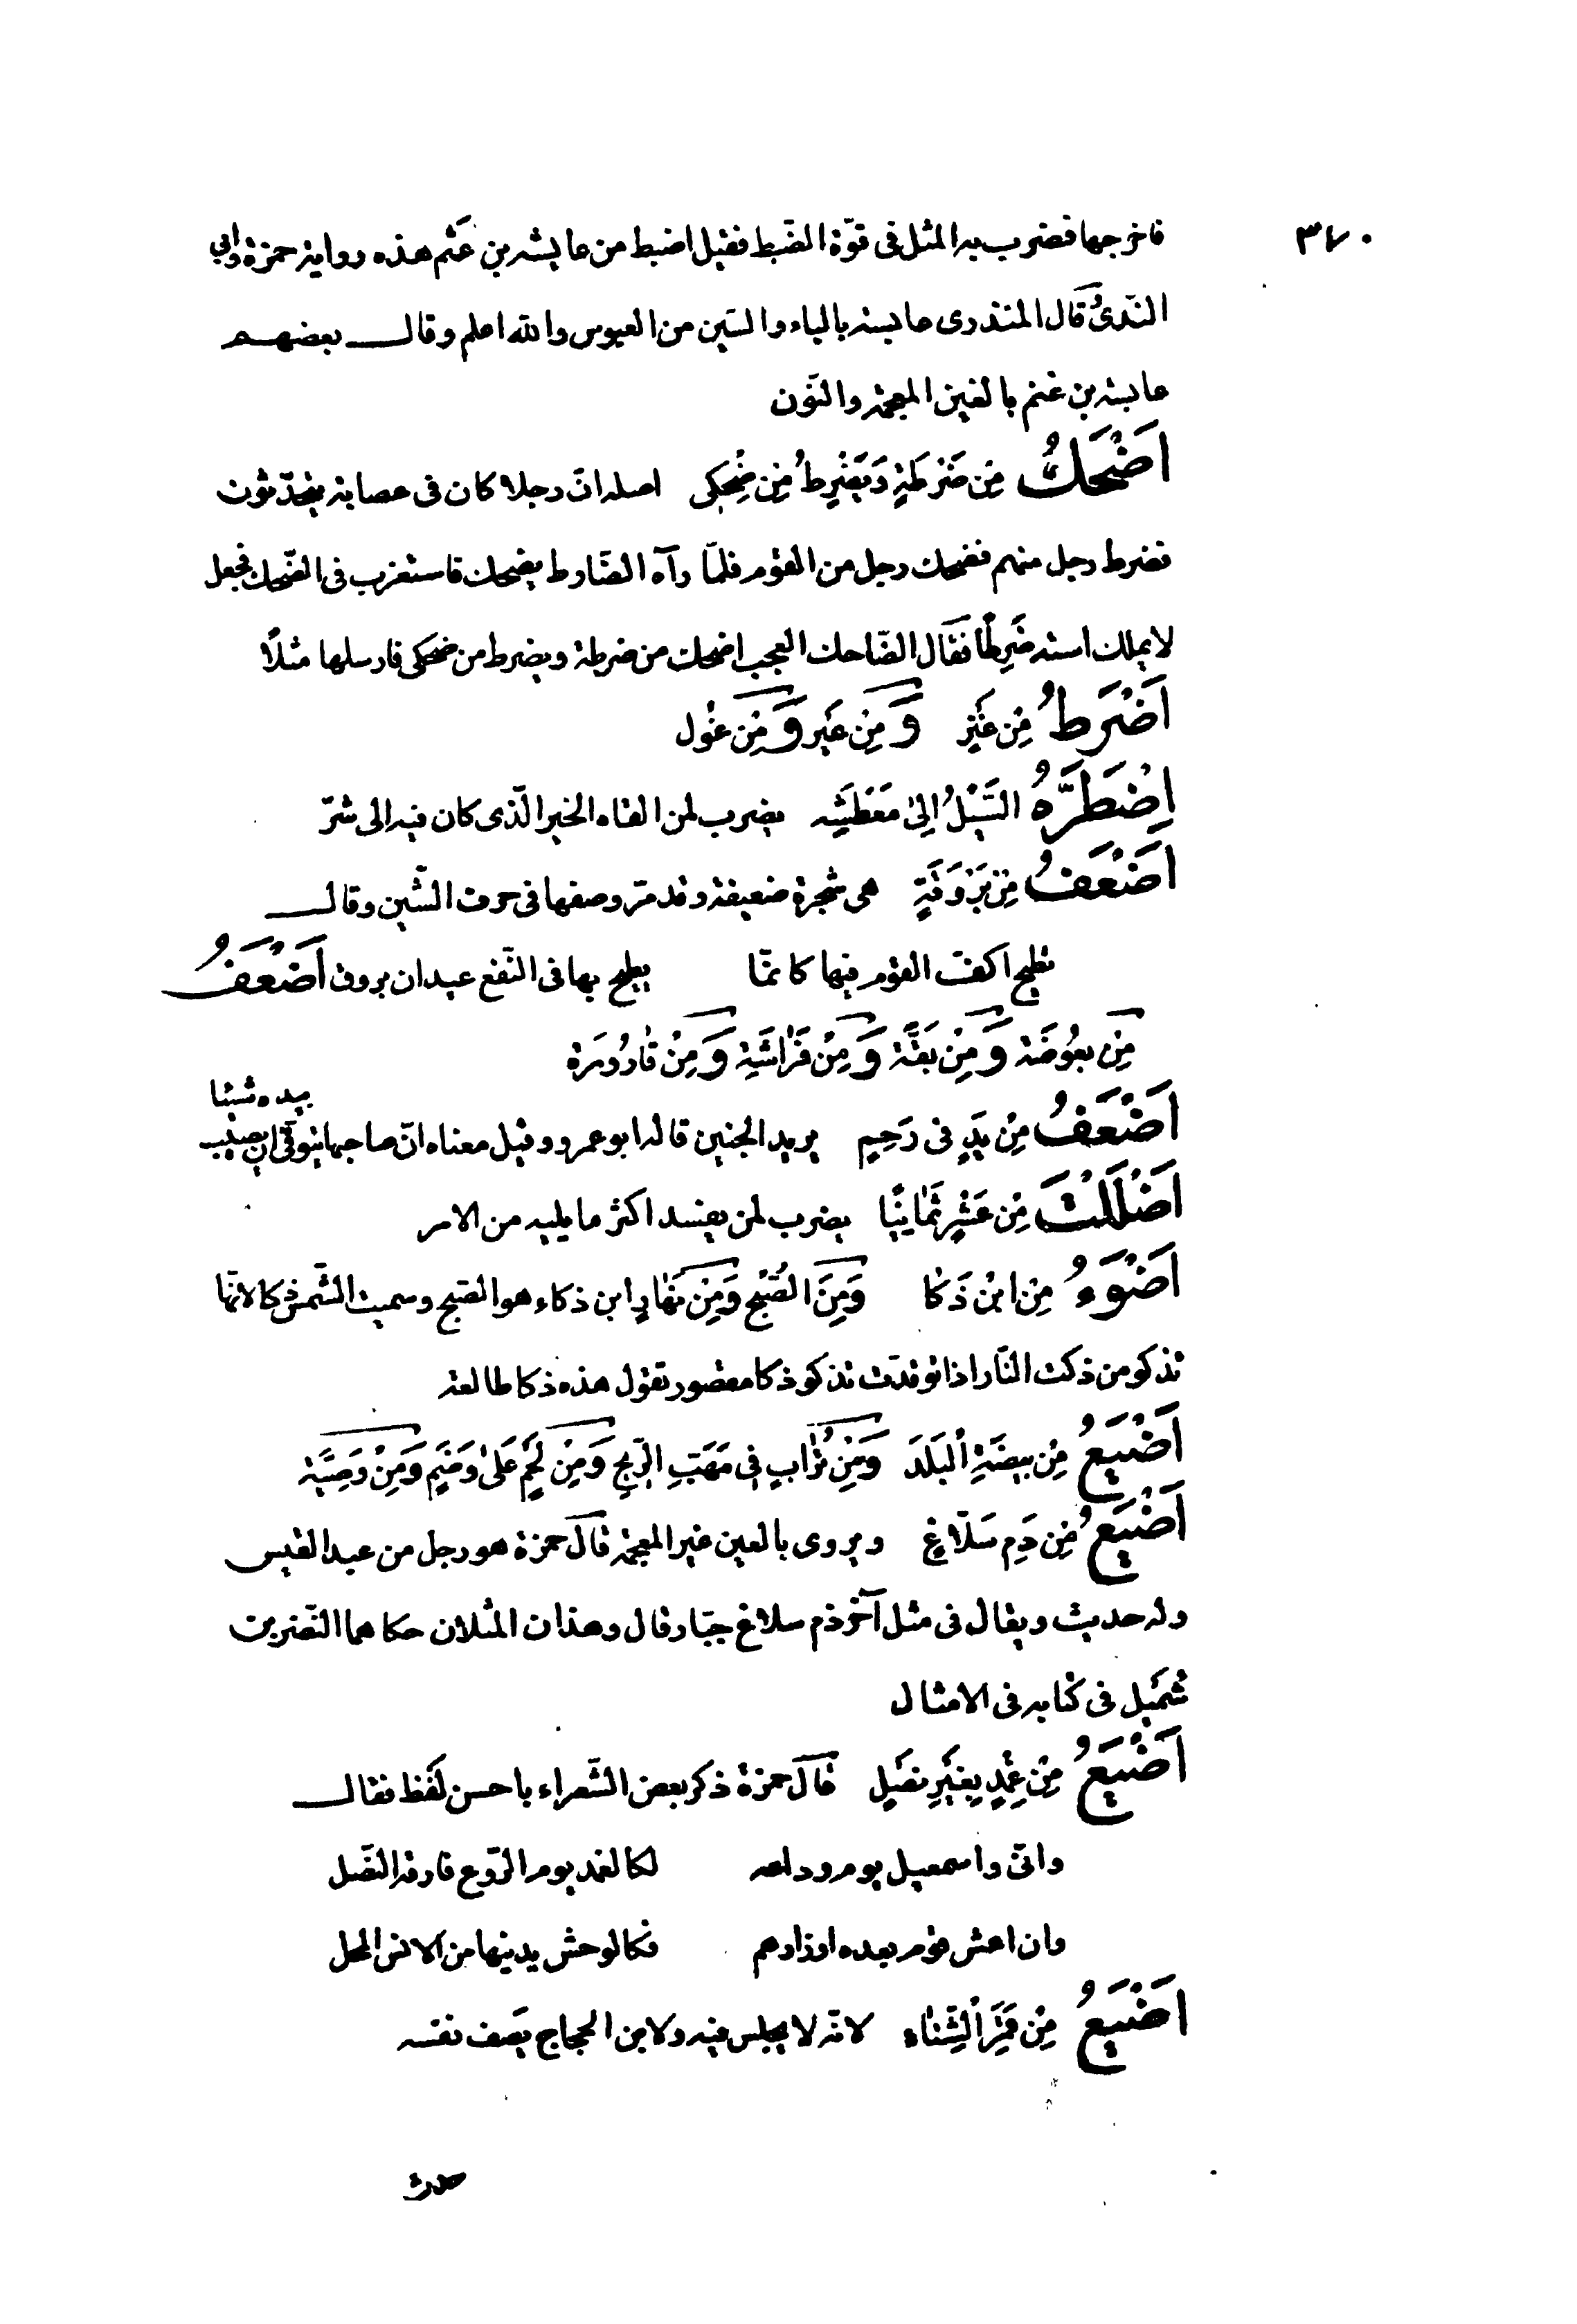 ٣٧٠
فاخرجها فضرب به المثل فى قوّة الضّبط فقيل اضبط من عايشه بن عَثم هذه رواية حمزة وابي
النّدىُ قَال المنذرى عابسة بالباء والسّين من العبوس والله اعلم وقال بعضهم
عابسة بن غنم بالغين المعجمة والنّون
اَضْحَكُ مِن ضَرْطَةٍ وَيَضْرِطُ مِن ضِحْكى اصله انّ رجلا كان فى عصابة يتحدّثون
فضرط رجل منهم فضحك رجل من القوم فلمّا رآه الضّارط يضحك فاستغرب فى الضّحك فجعل
لا يملك استه ضَرِطًا فقَال الضّاحك العجب اضحك من ضرطة ويضرط من ضحكى فارسلها مثلًا
اَضْرَطُ مِن عَنْزٍ وَمِنْ عَيْر وَمِن غوْل
اِضْطَرَّهُ السَّيْلُ اِلىٰ مَعْطَشِه يضرب لمن القاه الخير الّذى كان فيه الى شرّ
اَضْعَفُ مِن بَرْوَقَةٍ هى شجرة ضعيفة وقد مرّ وصفها فى حرف الشّين وقال
تطيح اكفّ القوم فيها كانمّا يطيح بها فى النّقع عيدان بروق اَضْعَفُ
مِن بعُوضَة وَمِنْ بَقَّة وَمِنْ فَرٰاشَةِ وَمِنْ قٰارُورَة
اَضْعَفُ مِنْ يَدٍ فى رَحِمٍ يريد الجنين قاله ابو عمرو وقيل معناه انّ صاحبها يتوقّى ان يصيب بيده شيئا
اَضْلَلْتَ مِن عَشْرٍ ثَمٰانِيًا يضرب لمن يفسد اكثر ما يليه من الامر
اَضْوَءُ مِن ابْن ذَكا وَمِنَ الصُّبْحِ وَمِنْ نَهٰارٍ ابن ذكاء هو الصّبح وسميت الشّمس ذكا لانهّا
تذكو من ذكت النّار اذا توقدّت تذكو ذكا مقصور تقول هذه ذكا طالعة
اَضْيَعُ مِنْ بيضَةِ اْلبَلَدَ وَمِن تُرٰابٍ فى مَهَبِّ الرّيح وَمِنْ لَحْمٍ عَلىٰ وَضَمٍ وَمِنْ وَصِيَّة
اَضْيَعُ مِن دَمِ سَلّاغٍ ويروى بالعين غير المعجمة قالَ حمزة هو رجل من عبد القيس
وله حديث ويقال فى مثل آخر دم سلاغ جبّار قال وهذان المثلان حكاهما النّضر بن
شميل فى كتابه فى الامثال
اَضْيَعُ مِنْ غِمْدٍ بِغيْرِ نصْلٍ قالَ حمزة ذكر بعض الشّعراء باحسن لفْظ فقال
وانّى واسمعيل يوم وداعه لكالغمد يوم الرّوع فارقه النّصل
وان اعش قوم بعده او ازارهم فكالوحش يدنيها من الانس المحل
اَضْيَعُ مِنْ قمَرِ اْلشِّتٰاء لانّه لا يجلس فيه ولابن الحجاج يصف نفسه
حدث